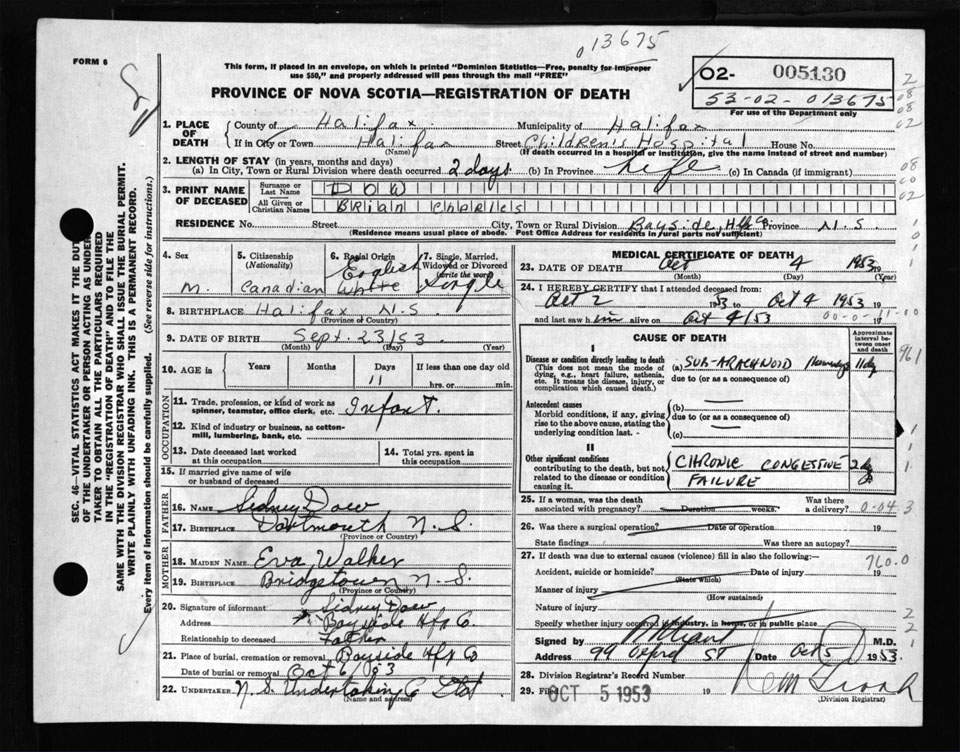 FORM 6
013675
This form, if placed in an envelope, on which is printed "Dominion Statistics—Free, penalty for improper
use $50," and properly addressed will pass through the mail "FREE"
PROVINCE OF NOVA SCOTIA—REGISTRATION OF DEATH
02- 005130
53-02-013675
For use of the Department only
1. PLACE OF DEATH
County of Halifax Municipality of Halifax
If in City or Town Halifax Street Children's Hospital House No.
(Name) (If death occurred in a hospital or institution, give the name instead of street and number)
2. LENGTH OF STAY (in years, months and days)
(a) In City, Town or Rural Division where death occurred 2 days (b) In Province Life (c) In Canada (if immigrant)
3. PRINT NAME OF DECEASED
Surname or Last Name DOW
All Given or Christian Names BRIAN CHARLES
RESIDENCE No. Street City, Town or Rural Division Bayside, Hfx Co Province N.S.
(Residence means usual place of abode. Post Office Address for residents in rural parts not sufficient)
4. Sex M.
5. Citizenship (Nationality) Canadian
6. Racial Origin English White
7. Single, Married, Widowed or Divorced (write the word) Single
8. BIRTHPLACE Halifax N.S.
(Province or Country)
9. DATE OF BIRTH Sept. 23/53
(Month) (Day) (Year)
10. AGE in Years Months Days 11 If less than one day old
hrs. or min.
OCCUPATION
11. Trade, profession, or kind of work as
spinner, teamster, office clerk, etc. Infant.
12. Kind of industry or business, as cotton-
mill, lumbering, bank, etc.
13. Date deceased last worked
at this occupation
14. Total yrs. spent in
this occupation
15. If married give name of wife
or husband of deceased
FATHER
16. Name Sidney Dow
17. Birthplace Dartmouth N.S.
(Province or Country)
MOTHER
18. Maiden Name Eva Walker
19. Birthplace Bridgetown N.S.
(Province or Country)
20. Signature of informant Sidney Dow
Address Bayside Hfx Co.
Relationship to deceased Father
21. Place of burial, cremation or removal Bayside Hfx Co
Date of burial or removal Oct 6/53
22. Undertaker N.S. Undertaking Co
(Name and address)
MEDICAL CERTIFICATE OF DEATH
23. DATE OF DEATH Oct 4 1953
(Month) (Day) (Year)
24. I HEREBY CERTIFY that I attended deceased from:
Oct 2 1953 to Oct 4 1953 19
and last saw him alive on Oct 4/53 19
CAUSE OF DEATH
Approximate interval between onset and death
I
Disease or condition directly leading to death
(This does not mean the mode of
dying, e.g., heart failure, asthenia,
etc. It means the disease, injury, or
complication which caused death.)
(a) SUB-ARACHNOID
due to (or as a consequence of)
Antecedent causes
Morbid conditions, if any, giving
rise to the above cause, stating the
underlying condition last.
(b)
due to (or as a consequence of)
(c)
II
Other significant conditions
contributing to the death, but not
related to the disease or condition
causing it.
CHRONIC CONGESTIVE
FAILURE
961
25. If a woman, was the death
associated with pregnancy? Duration weeks. Was there
a delivery? 0-04-3
26. Was there a surgical operation? Date of operation 19
State findings Was there an autopsy?
27. If death was due to external causes (violence) fill in also the following:—
760.0
Accident, suicide or homicide? Date of injury 19
(State which)
Manner of injury
(How sustained)
Nature of injury
Specify whether injury occurred in industry, in home, or in public place
Signed by M.D.
Address 99 Oxford St Date Oct 5 1953.
28. Division Registrar's Record Number
29. Filed OCT 5 1953 19
(Division Registrar)
SEC. 46—VITAL STATISTICS ACT MAKES IT THE DUTY
OF THE UNDERTAKER OR PERSON ACTING AS UNDER-
TAKER TO OBTAIN ALL THE PARTICULARS REQUIRED
IN THE "REGISTRATION OF DEATH" AND TO FILE THE
SAME WITH THE DIVISION REGISTRAR WHO SHALL ISSUE THE BURIAL PERMIT.
WRITE PLAINLY WITH UNFADING INK. THIS IS A PERMANENT RECORD.
Every item of information should be carefully supplied. (See reverse side for instructions.)